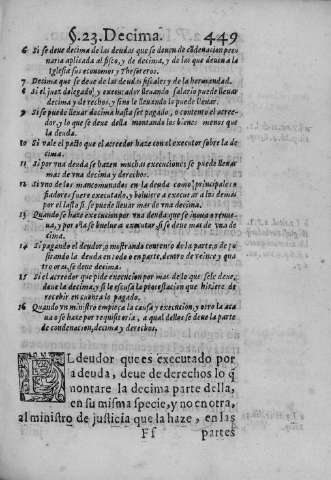 §. 23. Decima. 449
6 Si se deue decima de las deudas que se deuen de cõdenacion pecu
niaria aplicada al fisco, y de decima, y de las que deuen a la
Iglesia sus economos y Thesoreros.
7 Decima que se deue de las deudas fiscales y de la hermandad.
8 Si el juez delegado y executador lleuando salario puede lleuar
decima y derechos, y sino le lleuando lo puede lleuar.
9 Si se puede lleuar decima hasta ser pagado, o contento el acree-
dor, y lo que se deue della montando los bienes menos que
la deuda.
10 Si vale el pacto que el acreedor haze con el executor sobre la de
cima.
11 Si por vna deuda se hazen muchas execuciones se puede lleuar
mas de vna decima y derechos.
12 Si vno de los mancomunados en la deuda como principales o
fiadores fuere executado, y boluiere a executar a los demas
por el lasto si se puede lleuar mas de vna decima.
13 Quando se haze execucion por vna deuda que se inoua o renue-
ua, y por aña se buelue a executar, si se deue mas de vna de
cima.
14 Si pagando el deudor, o mostrando contento de la parte, o de ju
sificando la deuda en todo o en parte, dentro de veinte y qua
tro oras, se deue decima.
15 Si el acreedor que pide execucion por mas de lo que se le deue,
deue la decima, y si le escusa la protestacion que hiziere de
recebir en cuenta lo pagado.
16 Quando vn ministro empieça la causa y execucion, y otro la aca
ua o se haze por requisitoria, a qual dellos se deue la parte
de condenacion, decima y derechos.
EL deudor que es executado por
la deuda, deue de derechos lo q̃
montare la decima parte della,
en su misma specie, y no en otra,
al ministro de justicia que la haze, en las
Ff partes